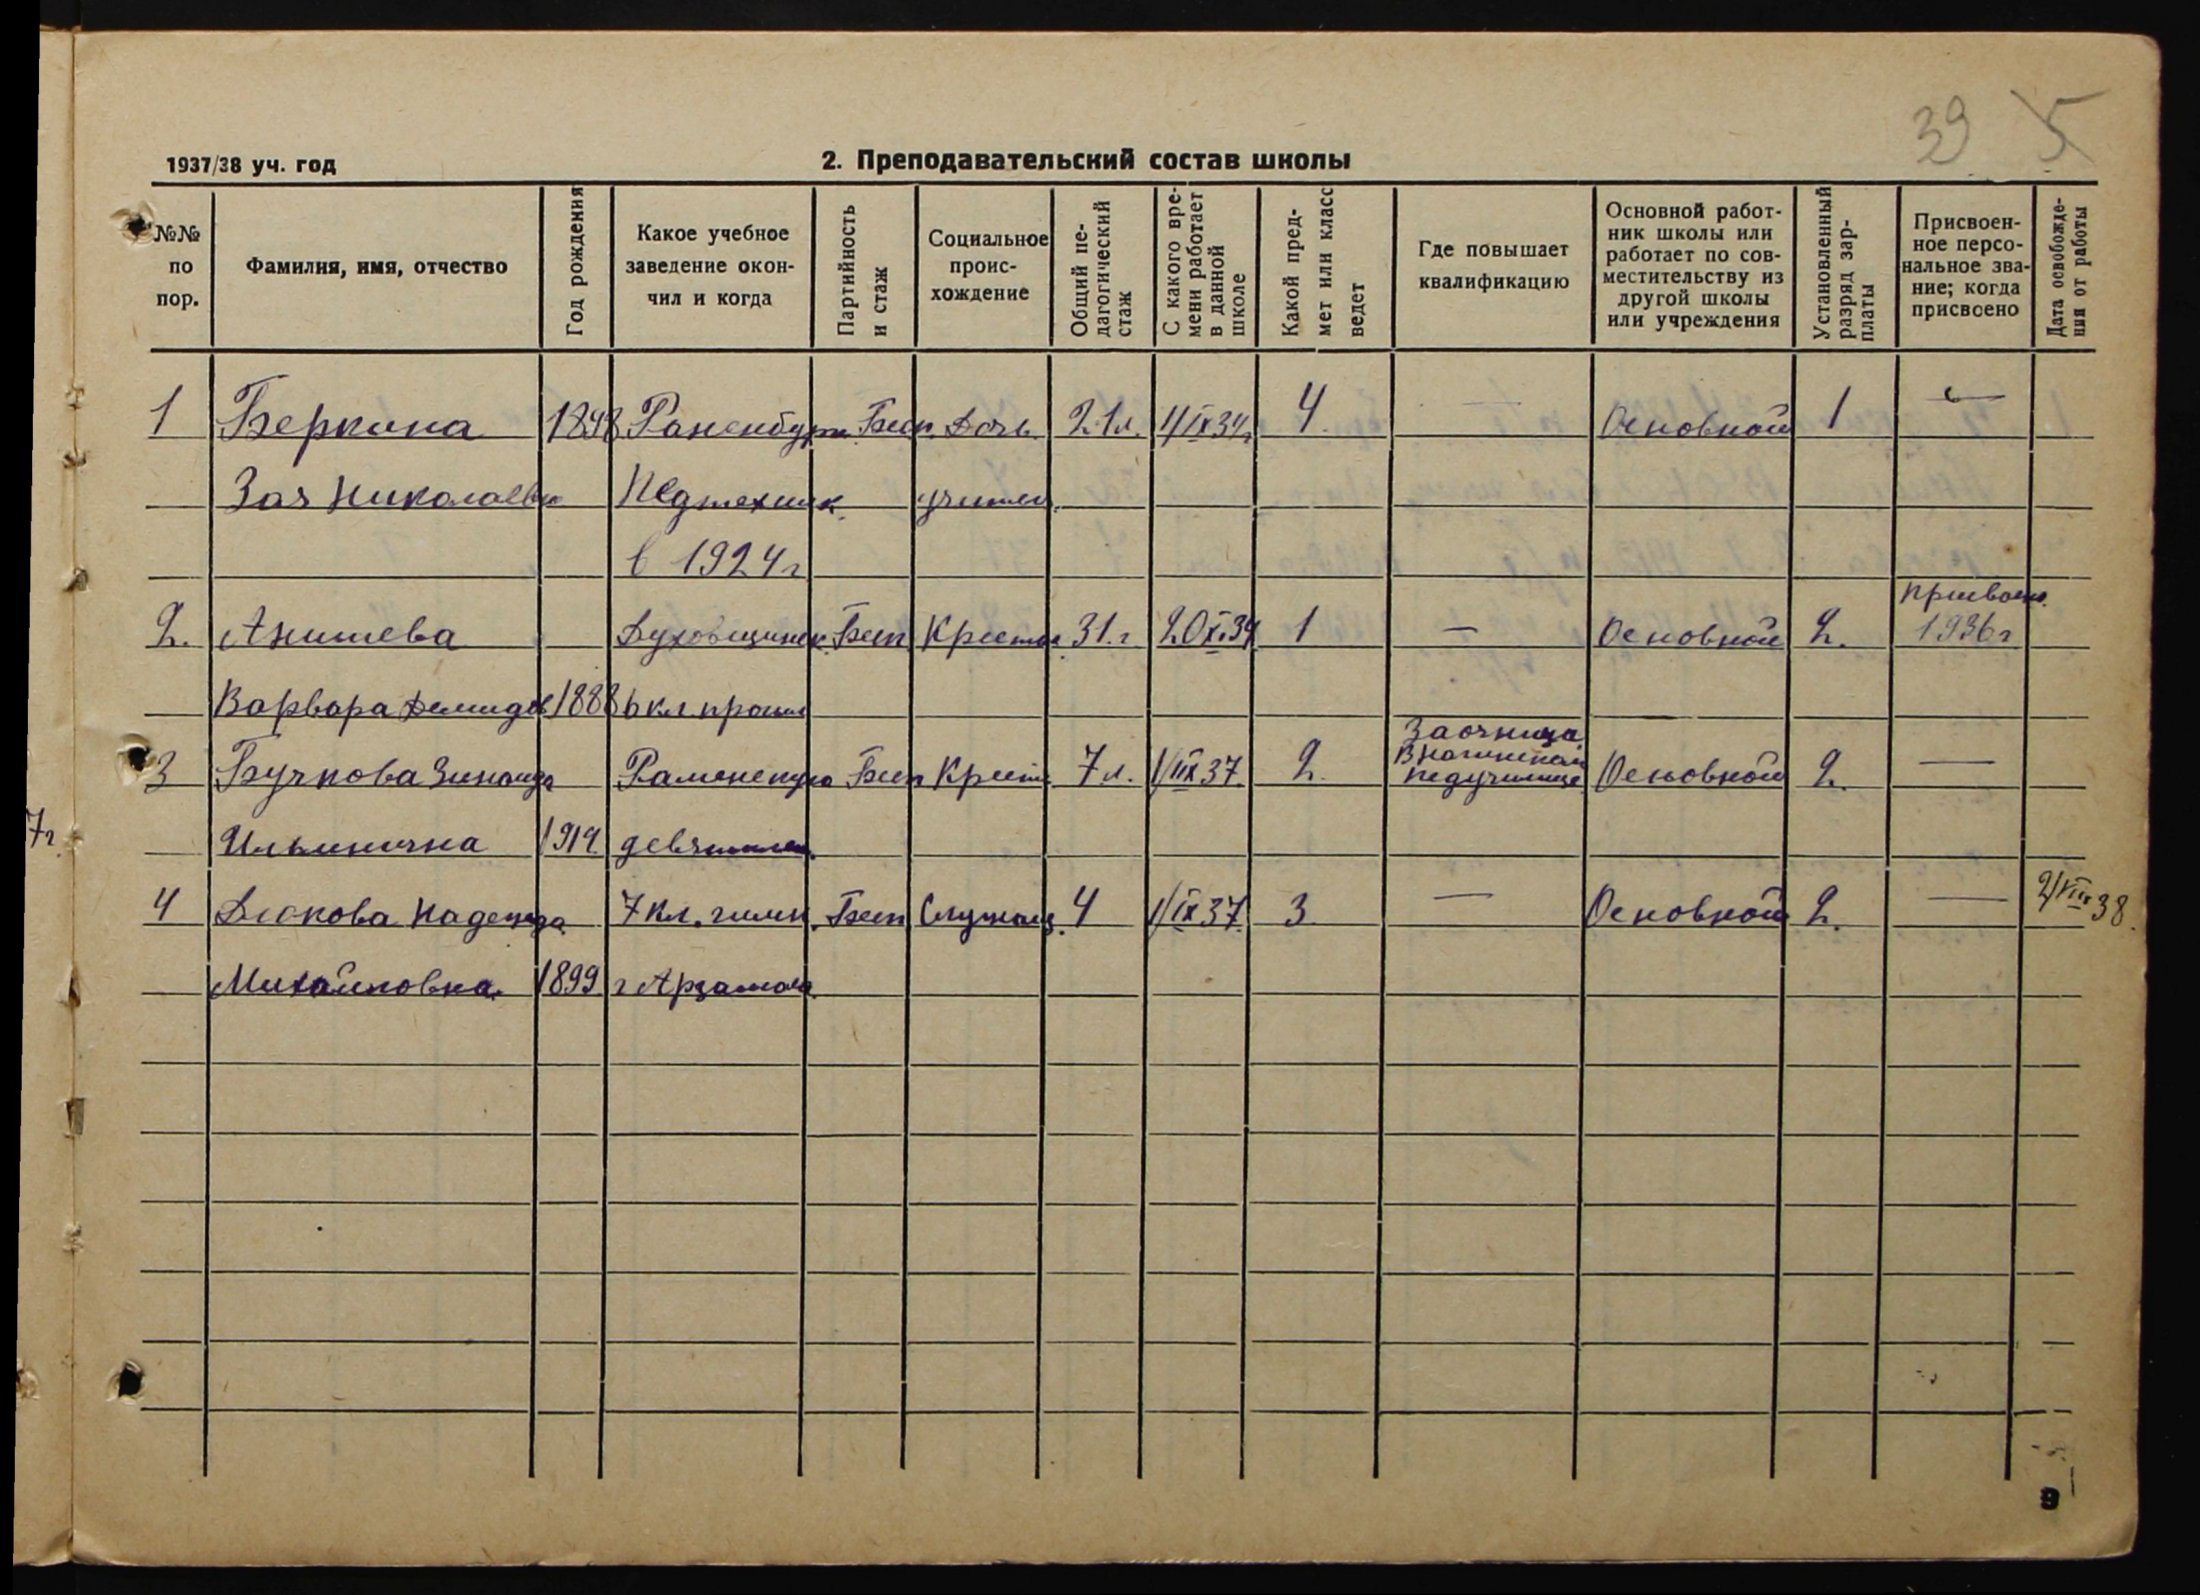 39 5
1937/38 уч. год
2. Преподавательский состав школы
№№ по пор.
Фамилия, имя, отчество
Год рождения
Какое учебное заведение окончил и когда
Партийность и стаж
Социальное происхождение
Общий педагогический стаж
С какого времени работает в данной школе
Какой предмет или класс ведет
Где повышает квалификацию
Основной работник школы или работает по совместительству из другой школы или учреждения
Установленный разряд зарплаты
Присвоенное персональное звание; когда присвоено
Дата освобождения от работы
1 Беркина 1898 Раненбург Бесп. Дочь 21л. 1/IX 34г 4 — Основной 1 —
Зоя Николаевн Педтехник учител.
в 1924г
2. Анишева Духовщинск Бесп Крестьн 31.г 20 XI 34 1 — Основной 2. 1936г
Варвара Демидов 1888 6 кл.
3 Бучкова Зинаида Раменскую Бесп Крест 7л. 37 2. Заочница Основной 2. —
педучилище
7г.
Ильинична 1919 девятилет.
4 Дюкова Надежда 7 кл. гимн. Бесп Служащ. 4 1/IX 37 3 — Основной 2. — 2/VIII 38.
Михайловна. 1899 г Арзамас
9